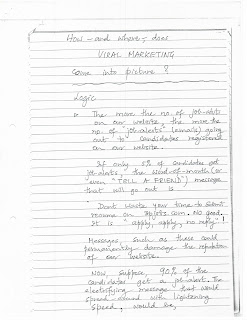 How - and where - does
VIRAL MARKETING
come into picture ?
Logic
The more the no of job-alerts
on our website, the more the
no of "job-alerts" (emails) going
out to candidates registered
on our website.
If only 5% of candidates get
job-alerts, the word-of-mouth (or
even "TELL A FRIEND") message
that will go out is
"Dont waste your time to submit
resume on 3pjobs.com. No good.
It is "apply, apply, no reply"!
Messages, such as these could
permanently damage the reputation
of our website.
NOW, suppose, 90% of the
candidates get a job-alert. The
electrifying message that would
speed around with lightening
speed, would be,